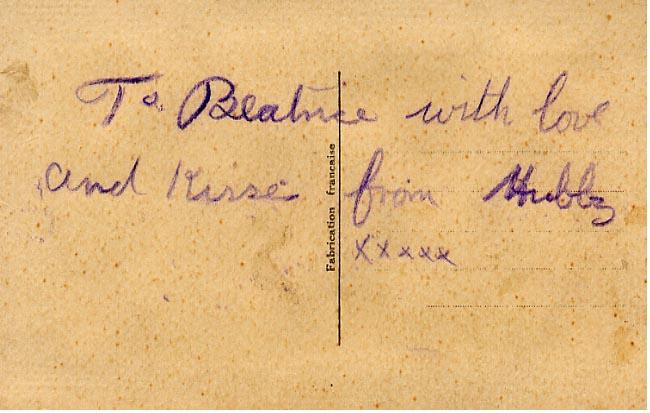 To Beatrice with love
and Kisse from Hubby
xxxxx
Fabrication française